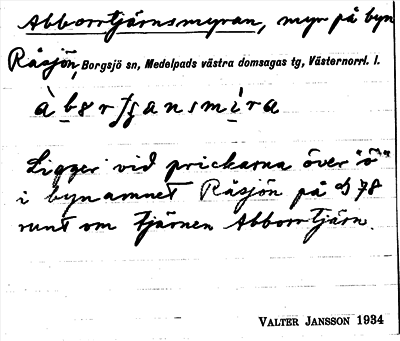 Abborrtjärnsmyran, myr på byn
Råsjön, Borgsjö sn, Medelpads västra domsagas tg, Västernorrl. l.
Ligger vid prickarna över "ö"
i bynamnet Råsjön på d 78
runt om tjärnen Abborrtjärn.
VALTER JANSSON 1934